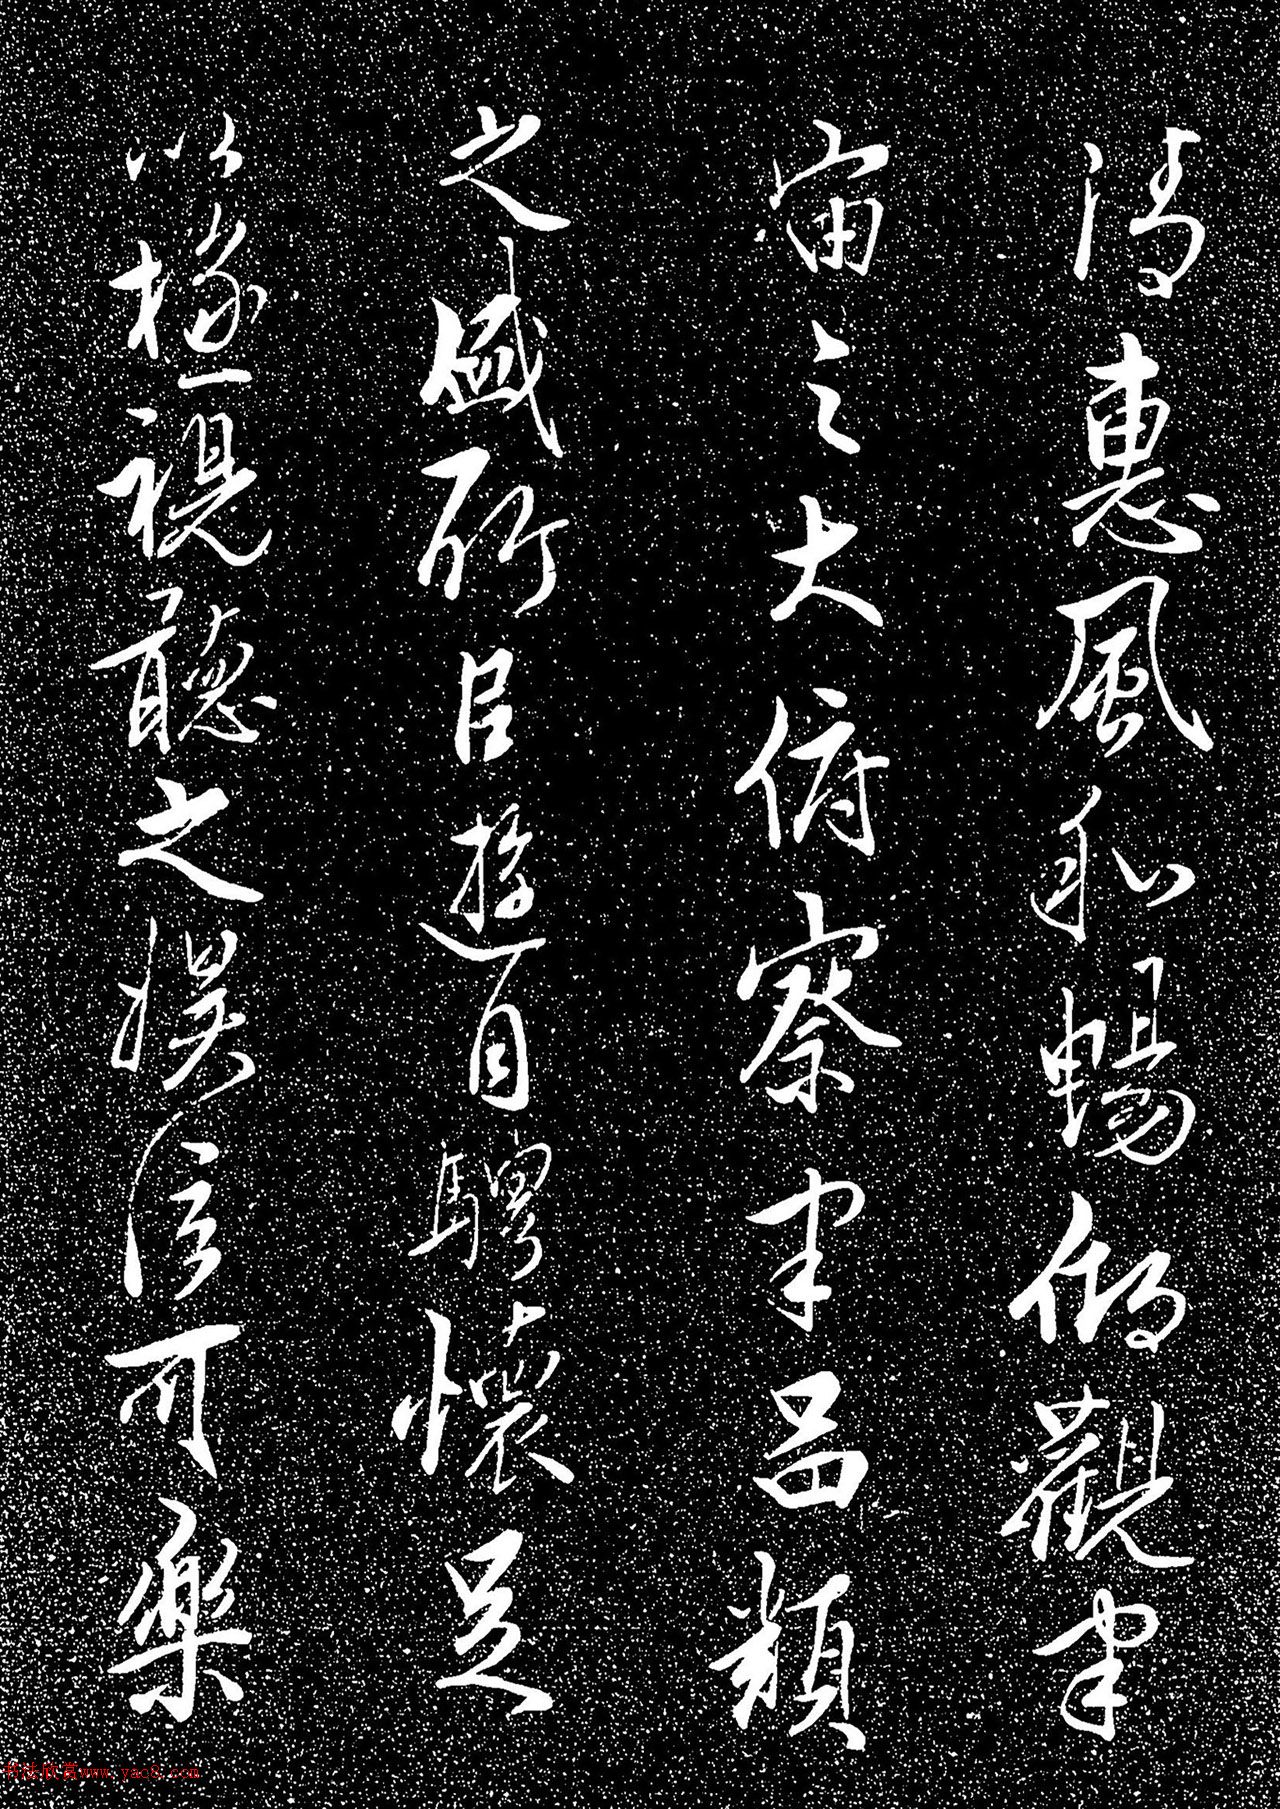 清惠風和暢仰觀宇
宙之大俯察宇品類
之盛所以遊目騁懷足
以極視聽之娛信可樂
书法欣赏www.yac8.com